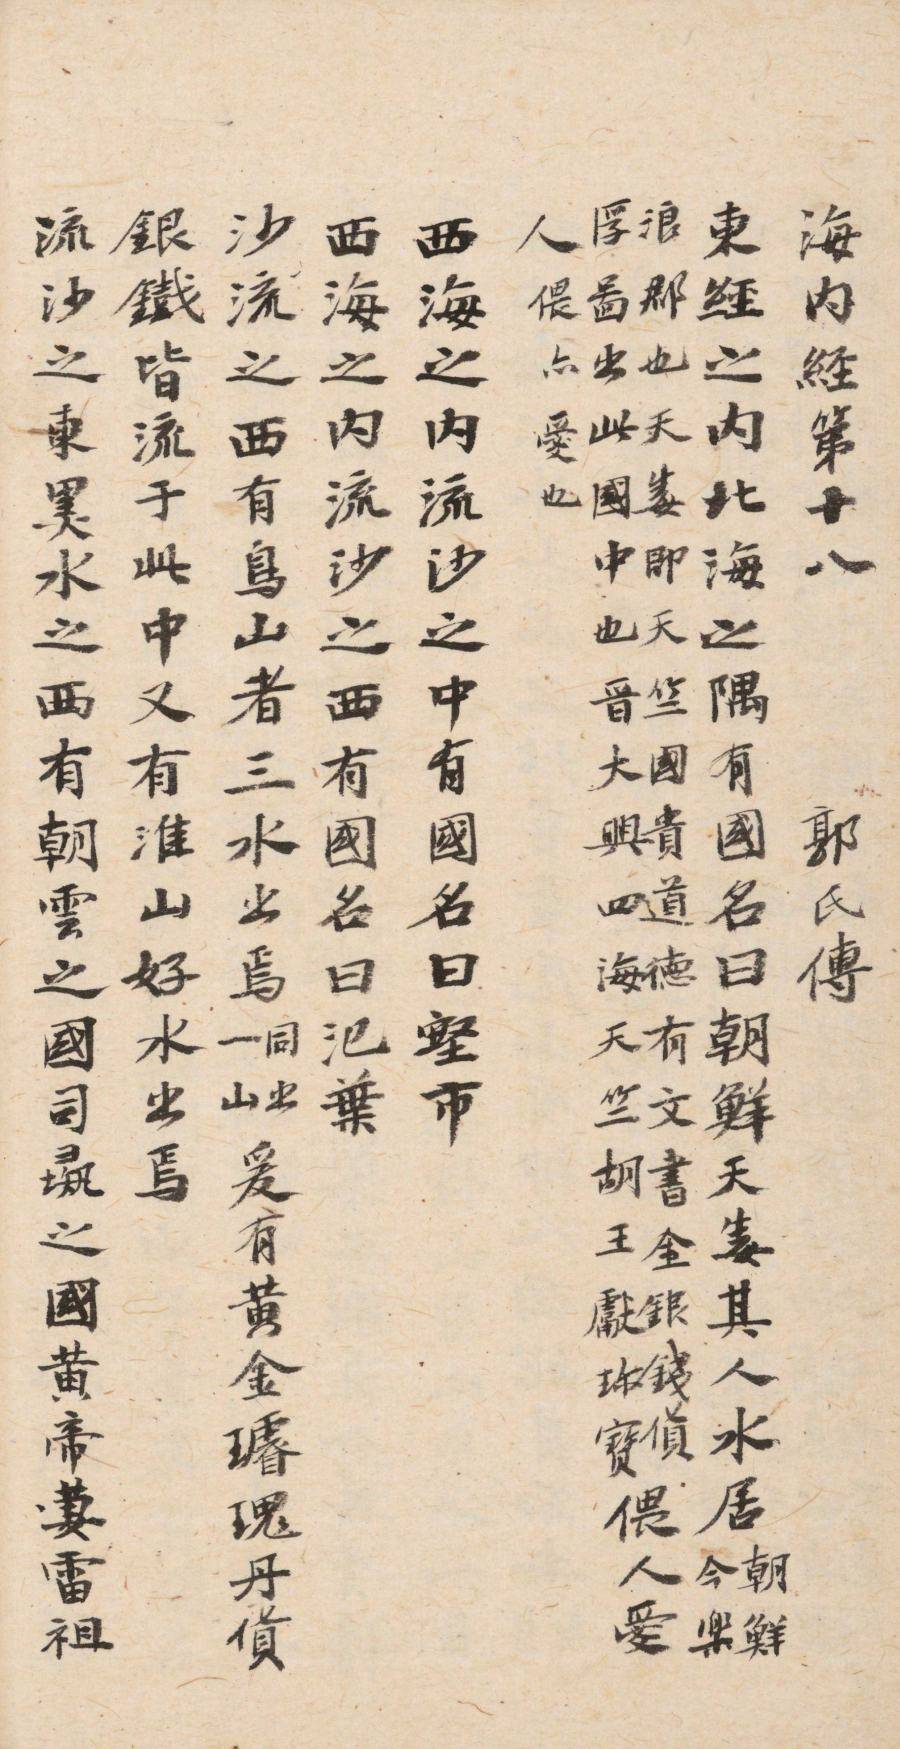 海内經第十八 郭氏傳
東經之内北海之隅有國名曰朝鮮天毒其人水居朝鮮今樂
浪郡也天毒即天竺國貴道德有文書金銀錢貨
浮啚出此國中也晉大興四海天竺胡王獻珎寶偎人愛
人偎亦愛也
西海之内流沙之中有國名曰壑市
西海之内流沙之西有國名曰氾葉
沙流之西有鳥山者三水出焉同出一山爰有黄金璿瑰丹貨
銀鐵皆流于此中又有淮山好水出焉
流沙之東黑水之西有朝雲之國司彘之國黄帝妻雷祖